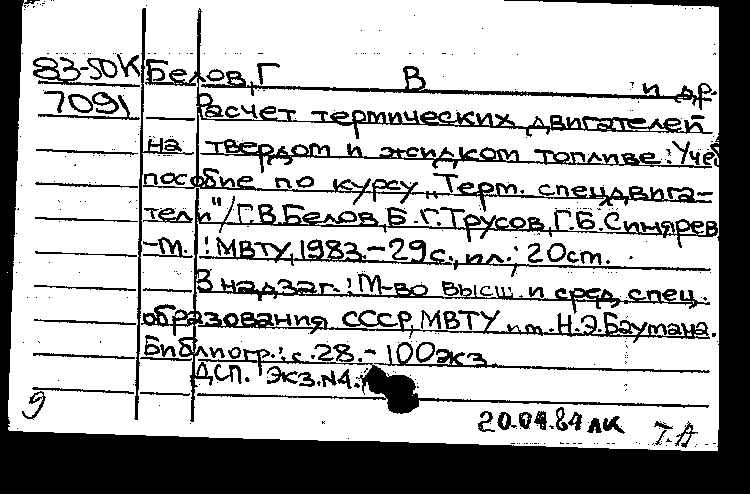 83-50К Белов, Г В и др.
7091 Расчет термических двигателей
на твердом и жидком топливе: Учеб
пособие по курсу „Терм. спецдвига-
тели"/Г.В.Белов, Б.Г.Трусов, Г.Б.Синярев
-М.: МВТУ, 1983.-29с., ил.; 20см.
В надзаг.: М-во высш. и сред. спец.
образования СССР, МВТУ им. Н.Э.Баумана.
Библиогр.: с.28.-100экз.
ДСП. Экз.N4.
9 20.04.84 лк Т.А